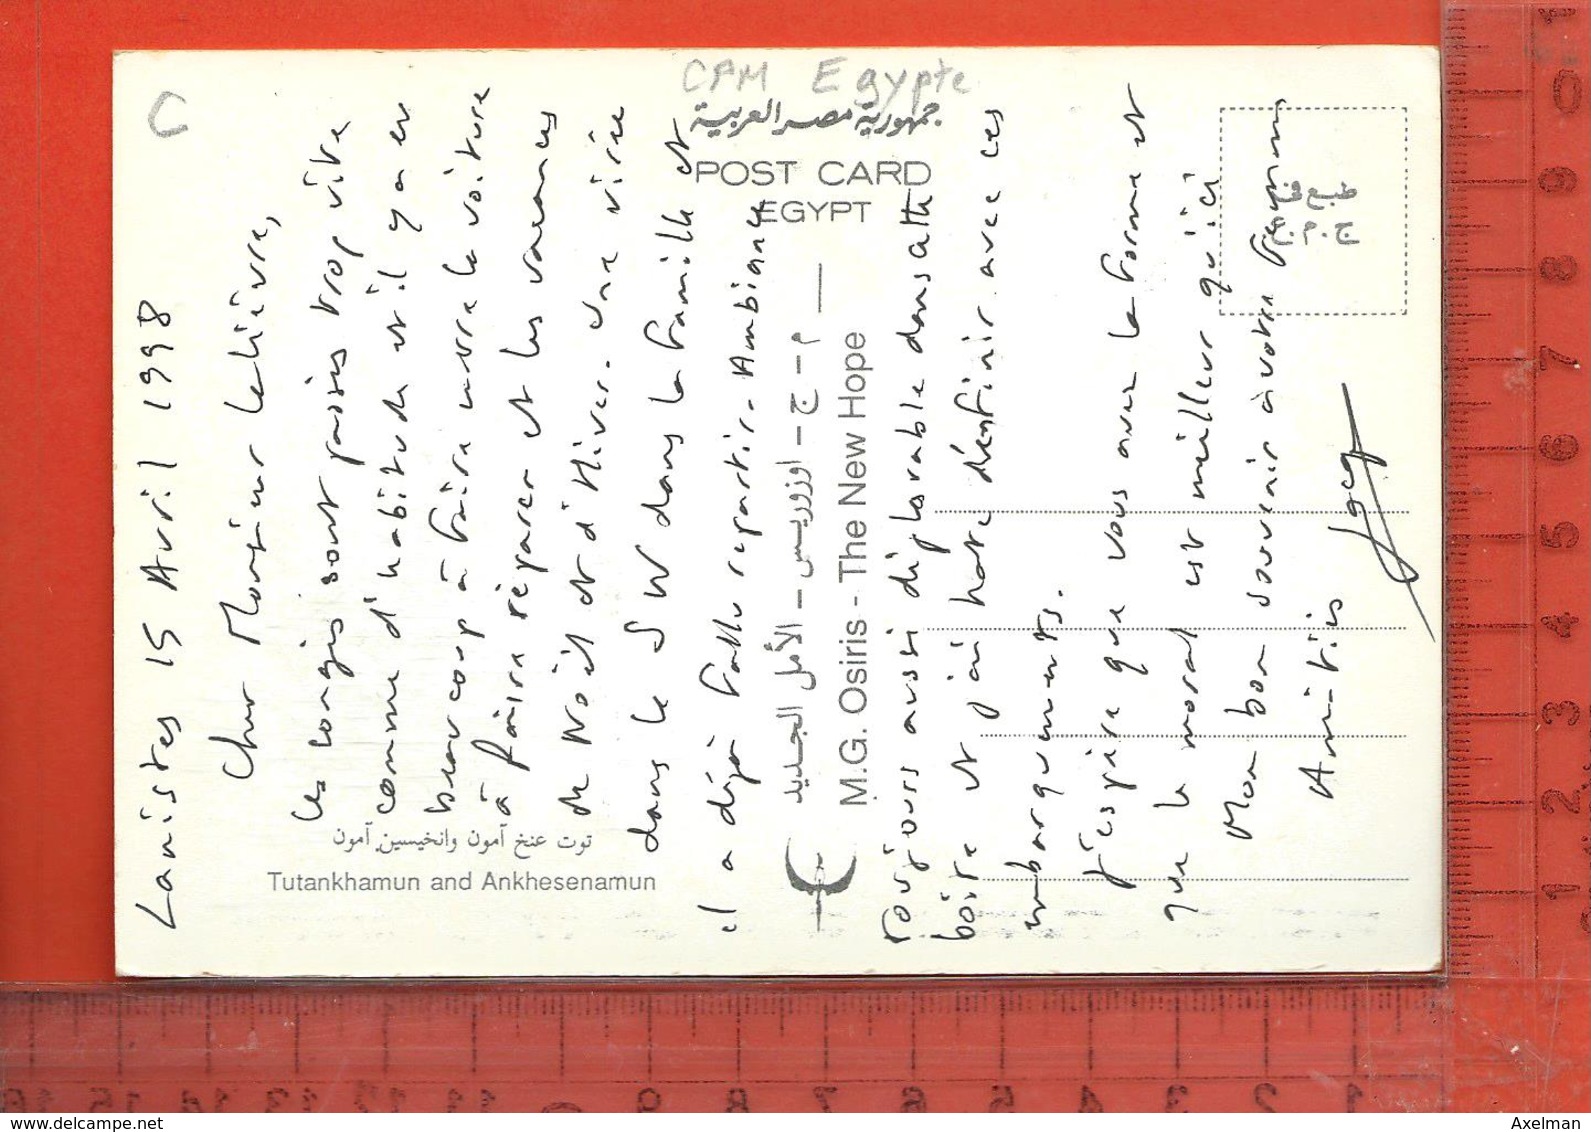 C
CPM Egypte
جمهورية مصر العربية
POST CARD
EGYPT
طبع في
ج.م.ع
توت عنخ آمون وانخيسين آمون
Tutankhamun and Ankhesenamun
م - ج - اوزوريس - الأمل الجديد
M.G. Osiris - The New Hope
15 Avril 1998
Cher Monsieur Lelièvre,
Les congés sont passés trop vite
comme d'habitude et il y a eu
beaucoup à faire entre la voiture
à faire réparer et les vacances
de Noël et d'Hiver. Une virée
dans le S W dans la famille et
il a déjà fallu repartir. Ambiance
toujours aussi déplorable dans cette
boîte et j'ai hâte d'en finir avec ces
embarquements.
J'espère que vous avez la forme et
que le moral est meilleur qu'ici
Mon bon souvenir à votre
Amitiés
0
9
8
7
6
5
4
3
2
1
15
14
13
12
11
10
9
8
7
6
5
4
3
2
1
www.delcampe.net
Axelman